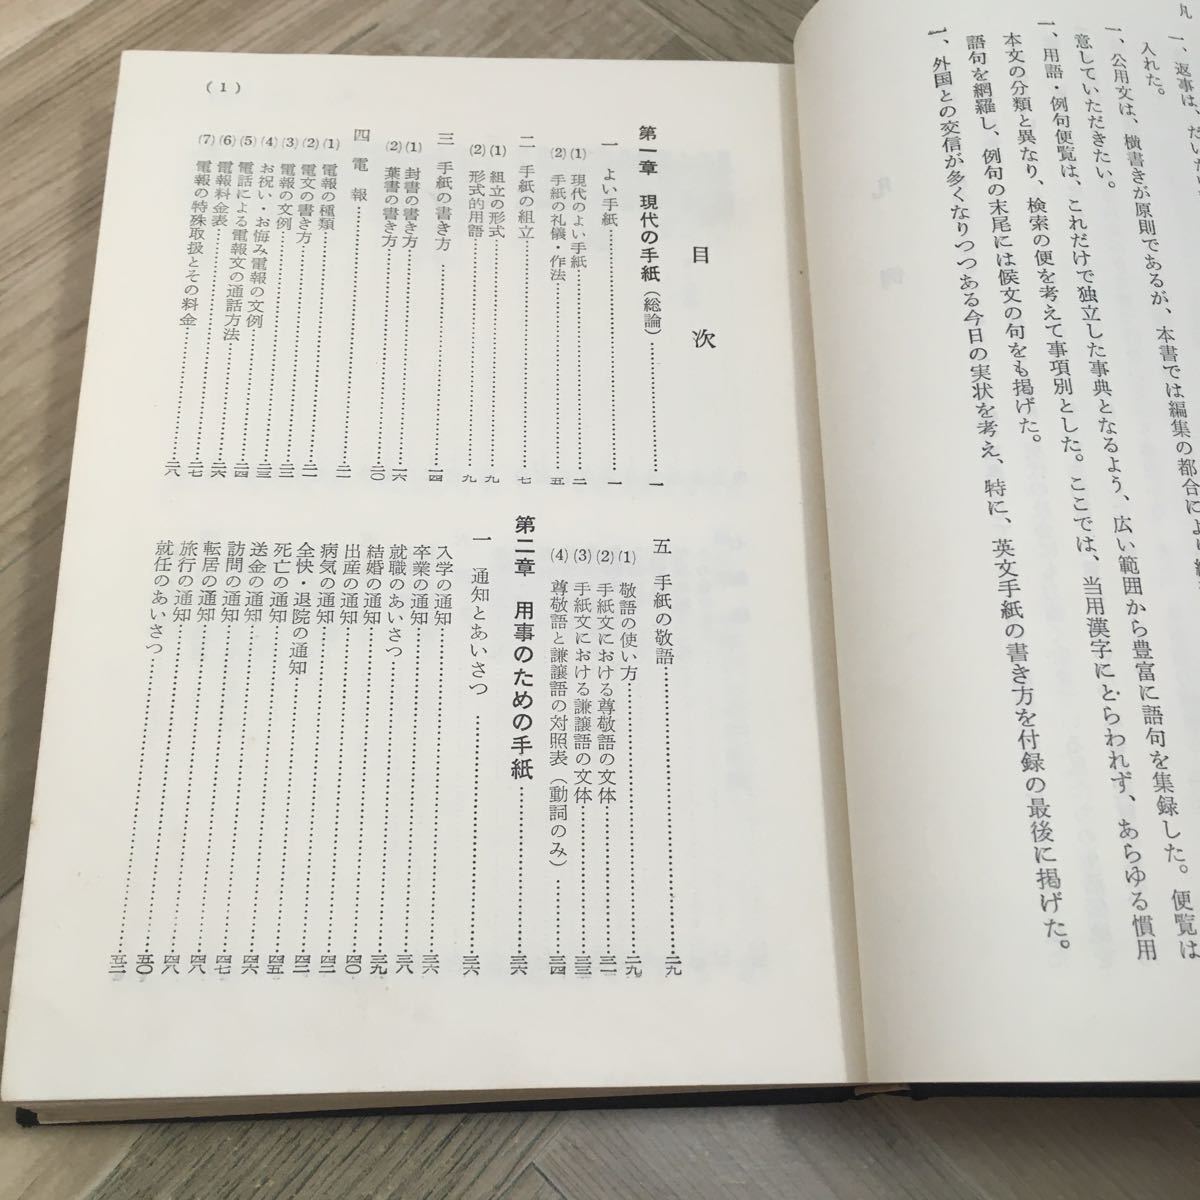 凡
一、返事は、だいたい
入れた。
一、公用文は、横書きが原則であるが、本書では編集の都合により
意していただきたい。
一、用語・例句便覧は、これだけで独立した事典となるよう、広い範囲から豊富に語句を集録した。便覧は
本文の分類と異なり、検索の便を考えて事項別とした。ここでは、当用漢字にとらわれず、あらゆる慣用
語句を網羅し、例句の末尾には候文の句をも掲げた。
一、外国との交信が多くなりつつある今日の実状を考え、特に、英文手紙の書き方を付録の最後に掲げた。
目次
第一章 現代の手紙(総論)……一
一 よい手紙……一
(1) 現代のよい手紙……二
(2) 手紙の礼儀・作法……五
二 手紙の組立……七
(1) 組立の形式……九
(2) 形式的用語……九
三 手紙の書き方……一四
(1) 封書の書き方……一六
(2) 葉書の書き方……二〇
四 電報……二一
(1) 電報の種類……二一
(2) 電文の書き方……二二
(3) 電報の文例……二三
(4) お祝い・お悔み電報の文例……二三
(5) 電話による電報文の通話方法……二四
(6) 電報料金表……二六
(7) 電報の特殊取扱とその料金……二七
二八
五 手紙の敬語……二九
(1) 敬語の使い方……二九
(2) 手紙文における尊敬語の文体……三一
(3) 手紙文における謙譲語の文体……三三
(4) 尊敬語と謙譲語の対照表(動詞のみ)……三四
第二章 用事のための手紙……三六
一 通知とあいさつ……三六
入学の通知……三六
卒業の通知……三八
就職のあいさつ……三九
結婚の通知……四〇
出産の通知……四二
病気の通知……四三
全快・退院の通知……四五
死亡の通知……四六
送金の通知……四七
訪問の通知……四八
転居の通知……四八
旅行の通知……五〇
就任のあいさつ……五二
(1)